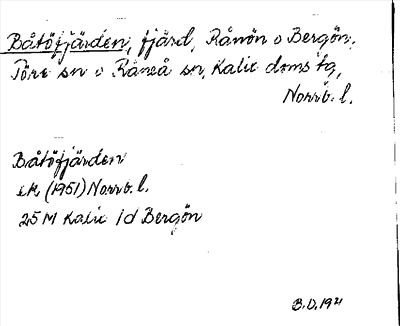 Båtöfjärden, fjärd, Rånön o Bergön,
Töre sn o Råneå sn, Kalix doms tg,
Norrb. l.
Båtöfjärden
ek (1951) Norrb. l.
25 M Kalix 1d Bergön
B.D. 1971